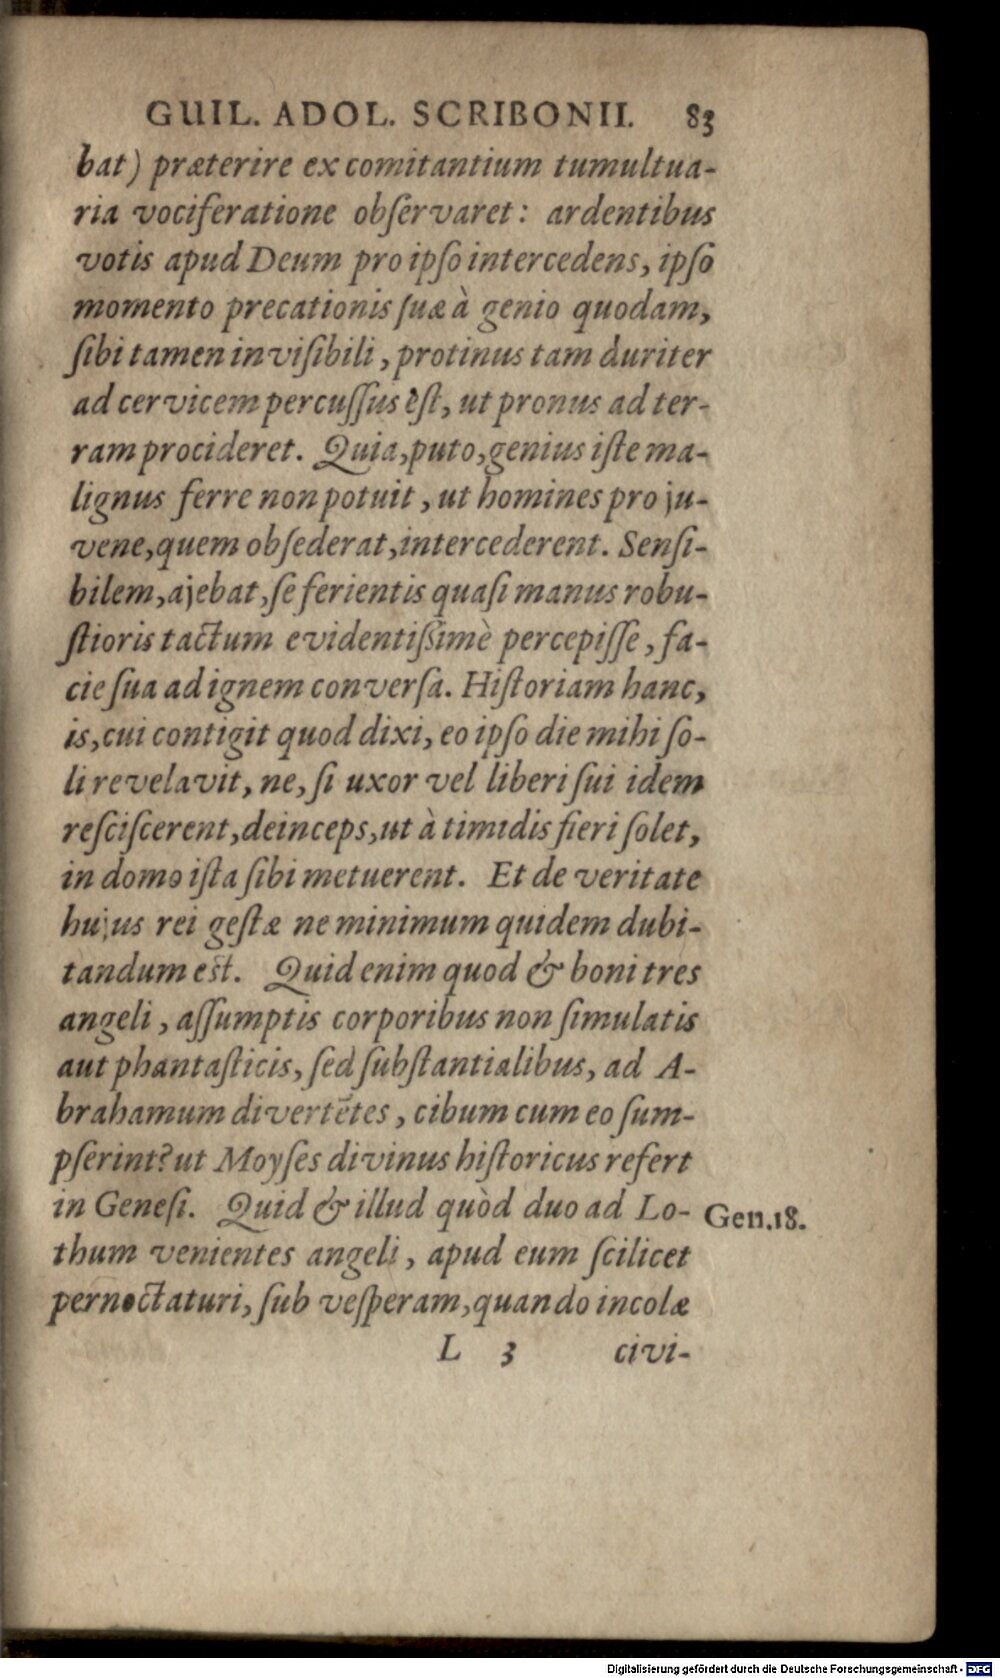 GUIL. ADOL. SCRIBONII. 83
bat) præterire ex comitantium tumultua-
ria vociferatione obſervaret: ardentibus
votis apud Deum pro ipſo intercedens, ipſo
momento precationis ſuæ à genio quodam,
ſibi tamen inviſibili, protinus tam duriter
ad cervicem percuſſus eſt, ut pronus ad ter-
ram procideret. Quia, puto, genius iſte ma-
lignus ferre non potuit, ut homines pro ju-
vene, quem obſederat, intercederent. Senſi-
bilem, ajebat, ſe ferientis quaſi manus robu-
ſtioris tactum evidentiſſimè percepiſſe, fa-
cie ſua ad ignem converſa. Hiſtoriam hanc,
is, cui contigit quod dixi, eo ipſo die mihi ſo-
li revelavit, ne, ſi uxor vel liberi ſui idem
reſciſcerent, deinceps, ut à timidis fieri ſolet,
in domo iſta ſibi metuerent. Et de veritate
hujus rei geſtæ ne minimum quidem dubi-
tandum eſt. Quid enim quod & boni tres
angeli, aſſumptis corporibus non ſimulatis
aut phantaſticis, ſed ſubſtantialibus, ad A-
brahamum divertētes, cibum cum eo ſum-
pſerint? ut Moyſes divinus hiſtoricus refert
in Geneſi. Quid & illud quòd duo ad Lo-
Gen. 18.
thum venientes angeli, apud eum ſcilicet
pernoctaturi, ſub veſperam, quando incolæ
L 3 civi-
Digitalisierung gefördert durch die Deutsche Forschungsgemeinschaft - DFG